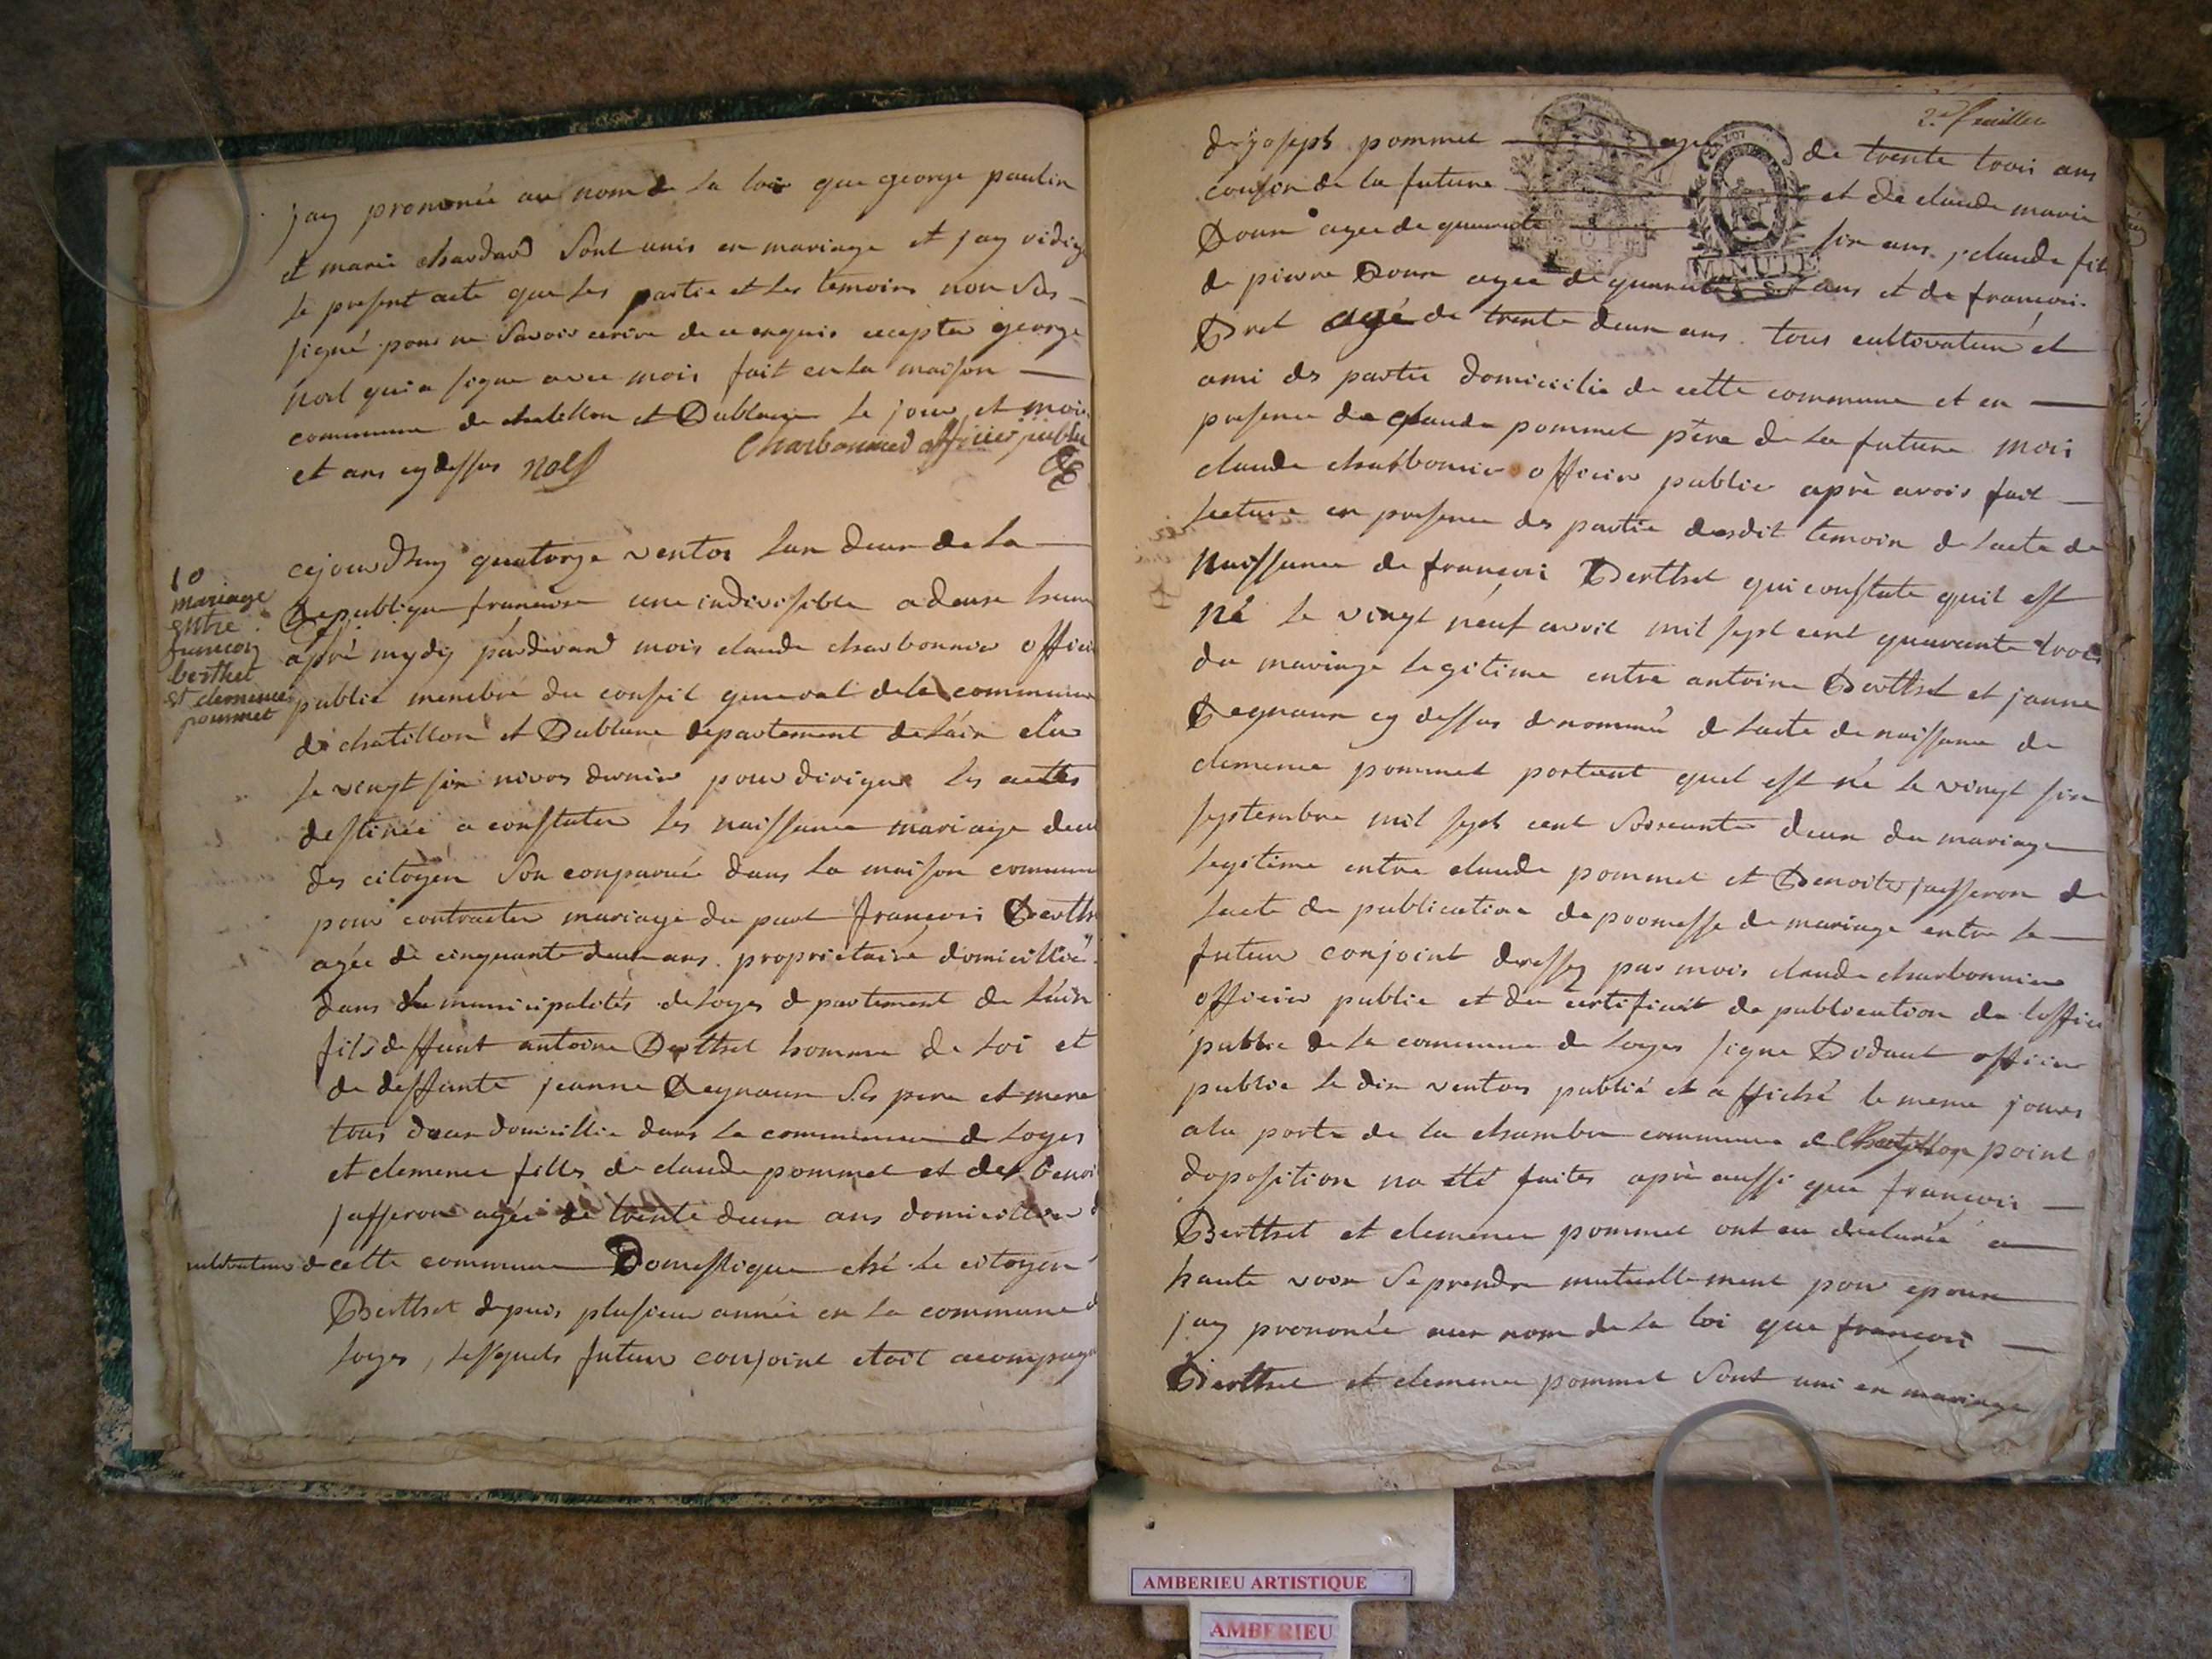 jay prononée au nom de la loix que george paulin
et marie chardard sont unis en mariage et jay rédigé
le present acte que les partie et les temoins non
signé pour ne savoir ecrire de ce enquis ecepter george
noel qui a signe avec mois fait en la maison
commune de chatillon et Dublane le jour et mois
et ans cy dessus noel Charbonnier officier public
10
mariage
entre
francois
berthet
et clemence
pommet
cejourdhuy quatorze ventos lan deux de la
Republique francoise une indivisible a deuse heure
apré mydy pardevand mois claude charbonnier officier
public membre du conseil general de la commune
de chatillon et Dublane departement de lain elu
le vingt six nivos dernier pour diriger les actes
destinée a constater les naissance mariage deces
des citoyen son conparuée dans la maison commune
pour contracter mariage du part francois Berthet
agée de cinquante deux ans proprietaire domicillié
dans la municipalités de loyes departement de lain
fils deffunt antoine Berthet homme de loi et
de deffunte jeanne Regnaux ses pere et mere
tous deux domicillie dans la commune de loyes
et clemence fille de claude pommet et de benoite
jasseron agée de trente deux ans domicillie
cultivateur de cette commune Domestique ché le citoyen
Berthet depuis plusieur année en la commune de
loyes, lessquels futeur conjoint etoit acompagné
2e feuillet
de joseph pommet agee de trente trois ans
cousin de la future et de claude marie
Roux agee de quarante six ans, claude fils
de pierre Roux agee de quarante ans et de francois
Bret agé de trente deux ans tous cultivateur et
ami des partie domicilie de cette commune et en
presence de claude pommet père de la future mois
claude charbonnier officier public aprè avoir fait
lecture en presence des partie desdit temoin de lacte de
Naissance de francois Berthet qui constate quil est
né le vingt neuf avril mil sept cent quarante trois
du mariage legitime entre antoine Berthet et janne
Regnaux cy dessus denommé de lacte de naissance de
clemence pommet portent quel est né le vingt six
septembre mil sept cent soixante deux du mariage
legitime entre claude pommet et Benoite jasseron de
lacte de publication de promesse de mariage entre le
futeur conjoint dressez par mois claude charbonnier
officier public et du certificat de publication de loffici
public de la commune de loyes signe Bidaut officier
public le dix ventos publié et affiché le meme jours
a la porte de la chambre commune de Chatillon point
doposition na été faites aprè aussi que francois
Berthet et clemence pommet ont eu declarée a
haute voix se prendre mutuellement pour epoux
jay prononée aux nom de la loi que francois
Berthet et clemence pommet sont uni en mariage
MINUTE
AMBERIEU ARTISTIQUE
AMBERIEU